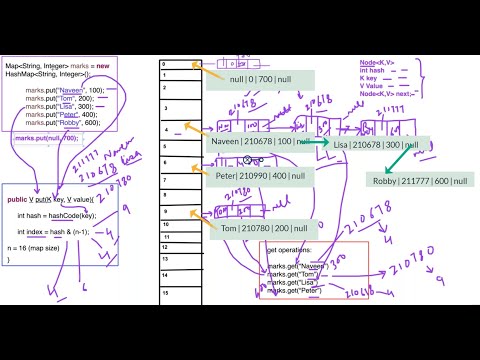 Map<String, Integer> marks = new
HashMap<String, Integer>();
marks.put("Naveen", 100);
marks.put("Tom", 200);
marks.put("Lisa", 300);
marks.put("Peter", 400);
marks.put("Robby", 600);
marks.put(null, 700);
211777 Naveen
210678 Lisa
210780
public V put(K key, V value){
int hash = hashCode(key);
int index = hash & (n-1);
n = 16 (map size)
}
9
4
4
6
0
1
2
3
4
5
6
7
8
9
10
11
12
13
14
15
null | 0 | 700 | null
210678
null
210678
211777
Naveen | 210678 | 100 | null
Lisa | 210678 | 300 | null
null
Peter| 210990 | 400 | null
Robby | 211777 | 600 | null
210780
null
Tom | 210780 | 200 | null
Node<K,V>
int hash
K key
V Value
Node<K,V> next;
get operations:
marks.get("Naveen")
marks.get("Tom")
marks.get("Lisa")
marks.get("Peter")
300
210678
4
210780
9
210678
4